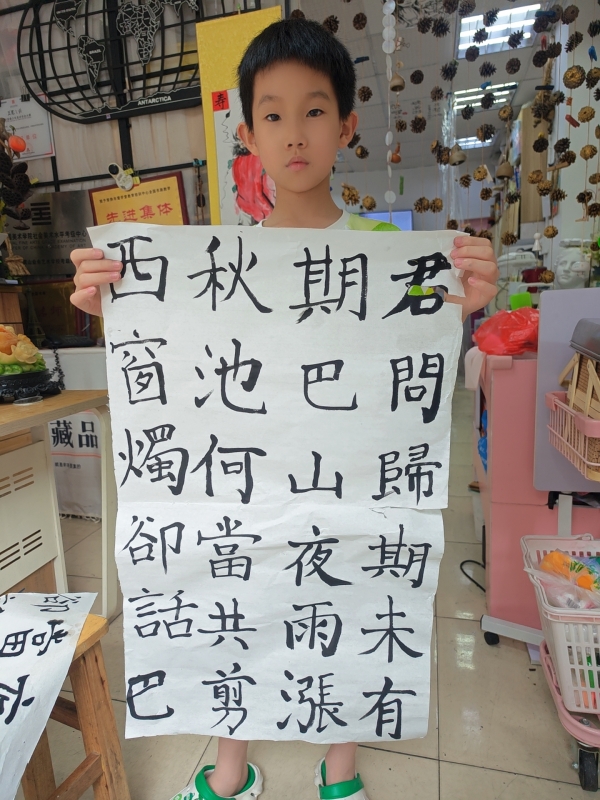 君問歸期未有
期巴山夜雨漲
秋池何當共剪
西窗燭卻話巴
ANTARCTICA
先进集体
藏品